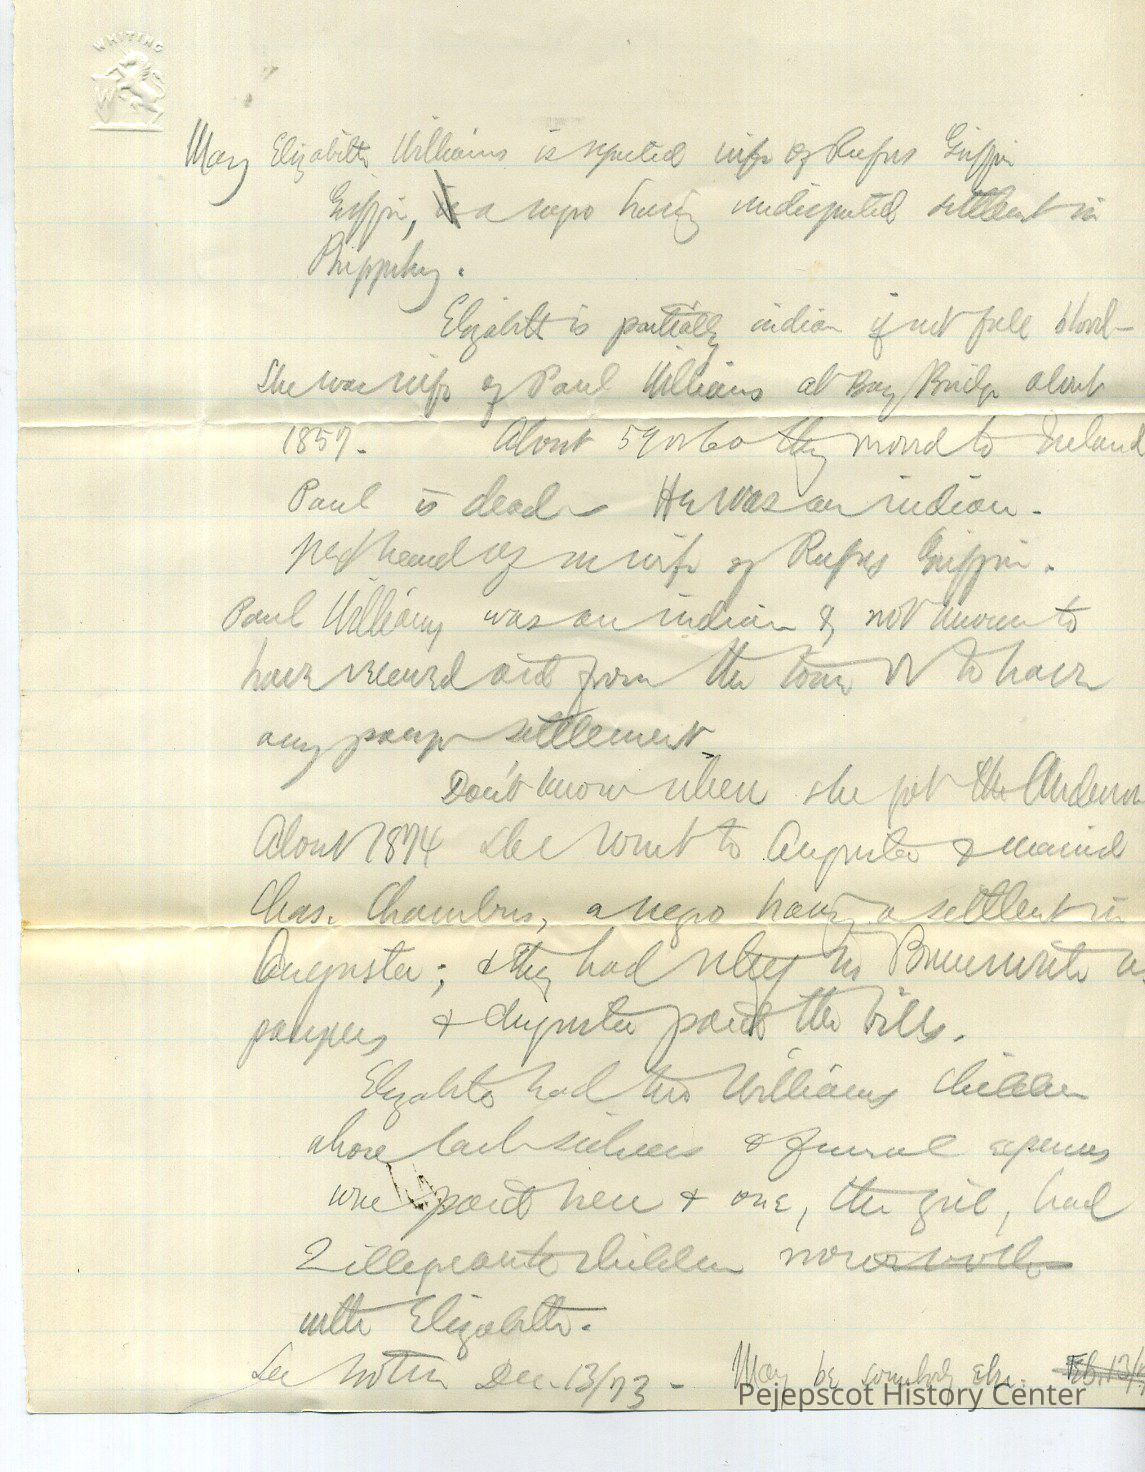 WHITING
W
Mary Elizabeth Williams is reputed wife of Rufus Griffin
Griffin, is a negro having undisputed settlement in
Phippsburg.
Elizabeth is partially indian if not full blood -
She was wife of Paul Williams at Bay Bridge about
1857. About 59 or 60 they moved to Ireland
Paul is dead - He was an indian.
heard of wife of Rufus Griffin.
Paul Williams was an indian & not known to
have received aid from the town or to have
any pauper settlement.
Don't know when she got the
About 1874 she went to Augusta & married
Chas. Chambers, a negro having a settlement in
Augusta; & they had relief in Brunswick as
paupers & Augusta paid the bills.
Elizabeth had two Williams children
whose last sickness & funeral expenses
were paid here & one, the girl, had
2 illegitimate children now
with Elizabeth.
See Dec. 13/73 - May be somebody else. Feb. 13/
Pejepscot History Center